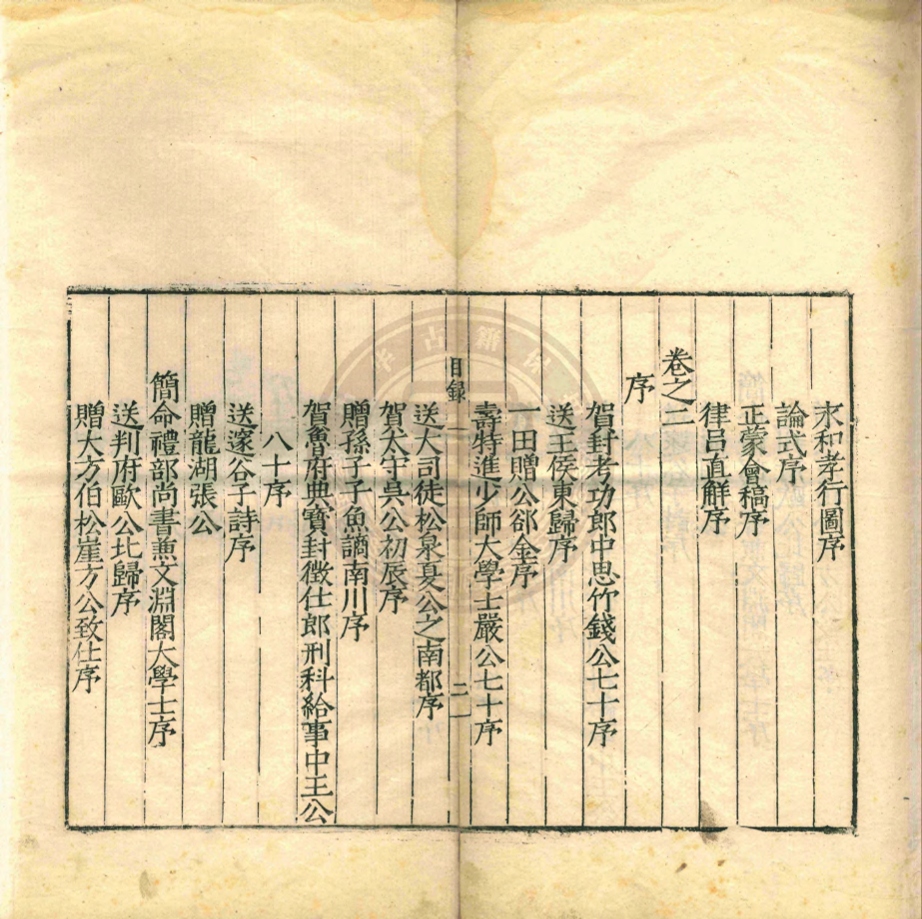 永和孝行圖序
論式序
正蒙會稿序
律呂直解序
卷之二
序
賀封考功郎中思竹錢公七十序
送王侯東歸序
一田贈公郤金序
壽特進少師大學士嚴公七十序
目録
二
送大司徒松泉夏公之南都序
賀太守吳公初辰序
贈孫子子魚謫南川序
賀魯府典寶封徵仕郎刑科給事中王公
八十序
送邃谷子詩序
贈龍湖張公
簡命禮部尚書蒹文淵閣大學士序
送判府歐公北歸序
贈大方伯松崖方公致仕序